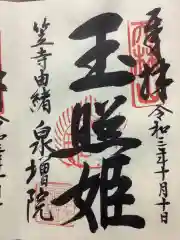 奉拝
令和三年十月十日
玉照姫
笠寺由緒
泉増院